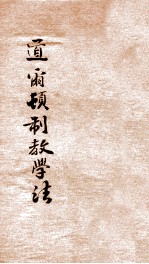 道爾頓制教學法